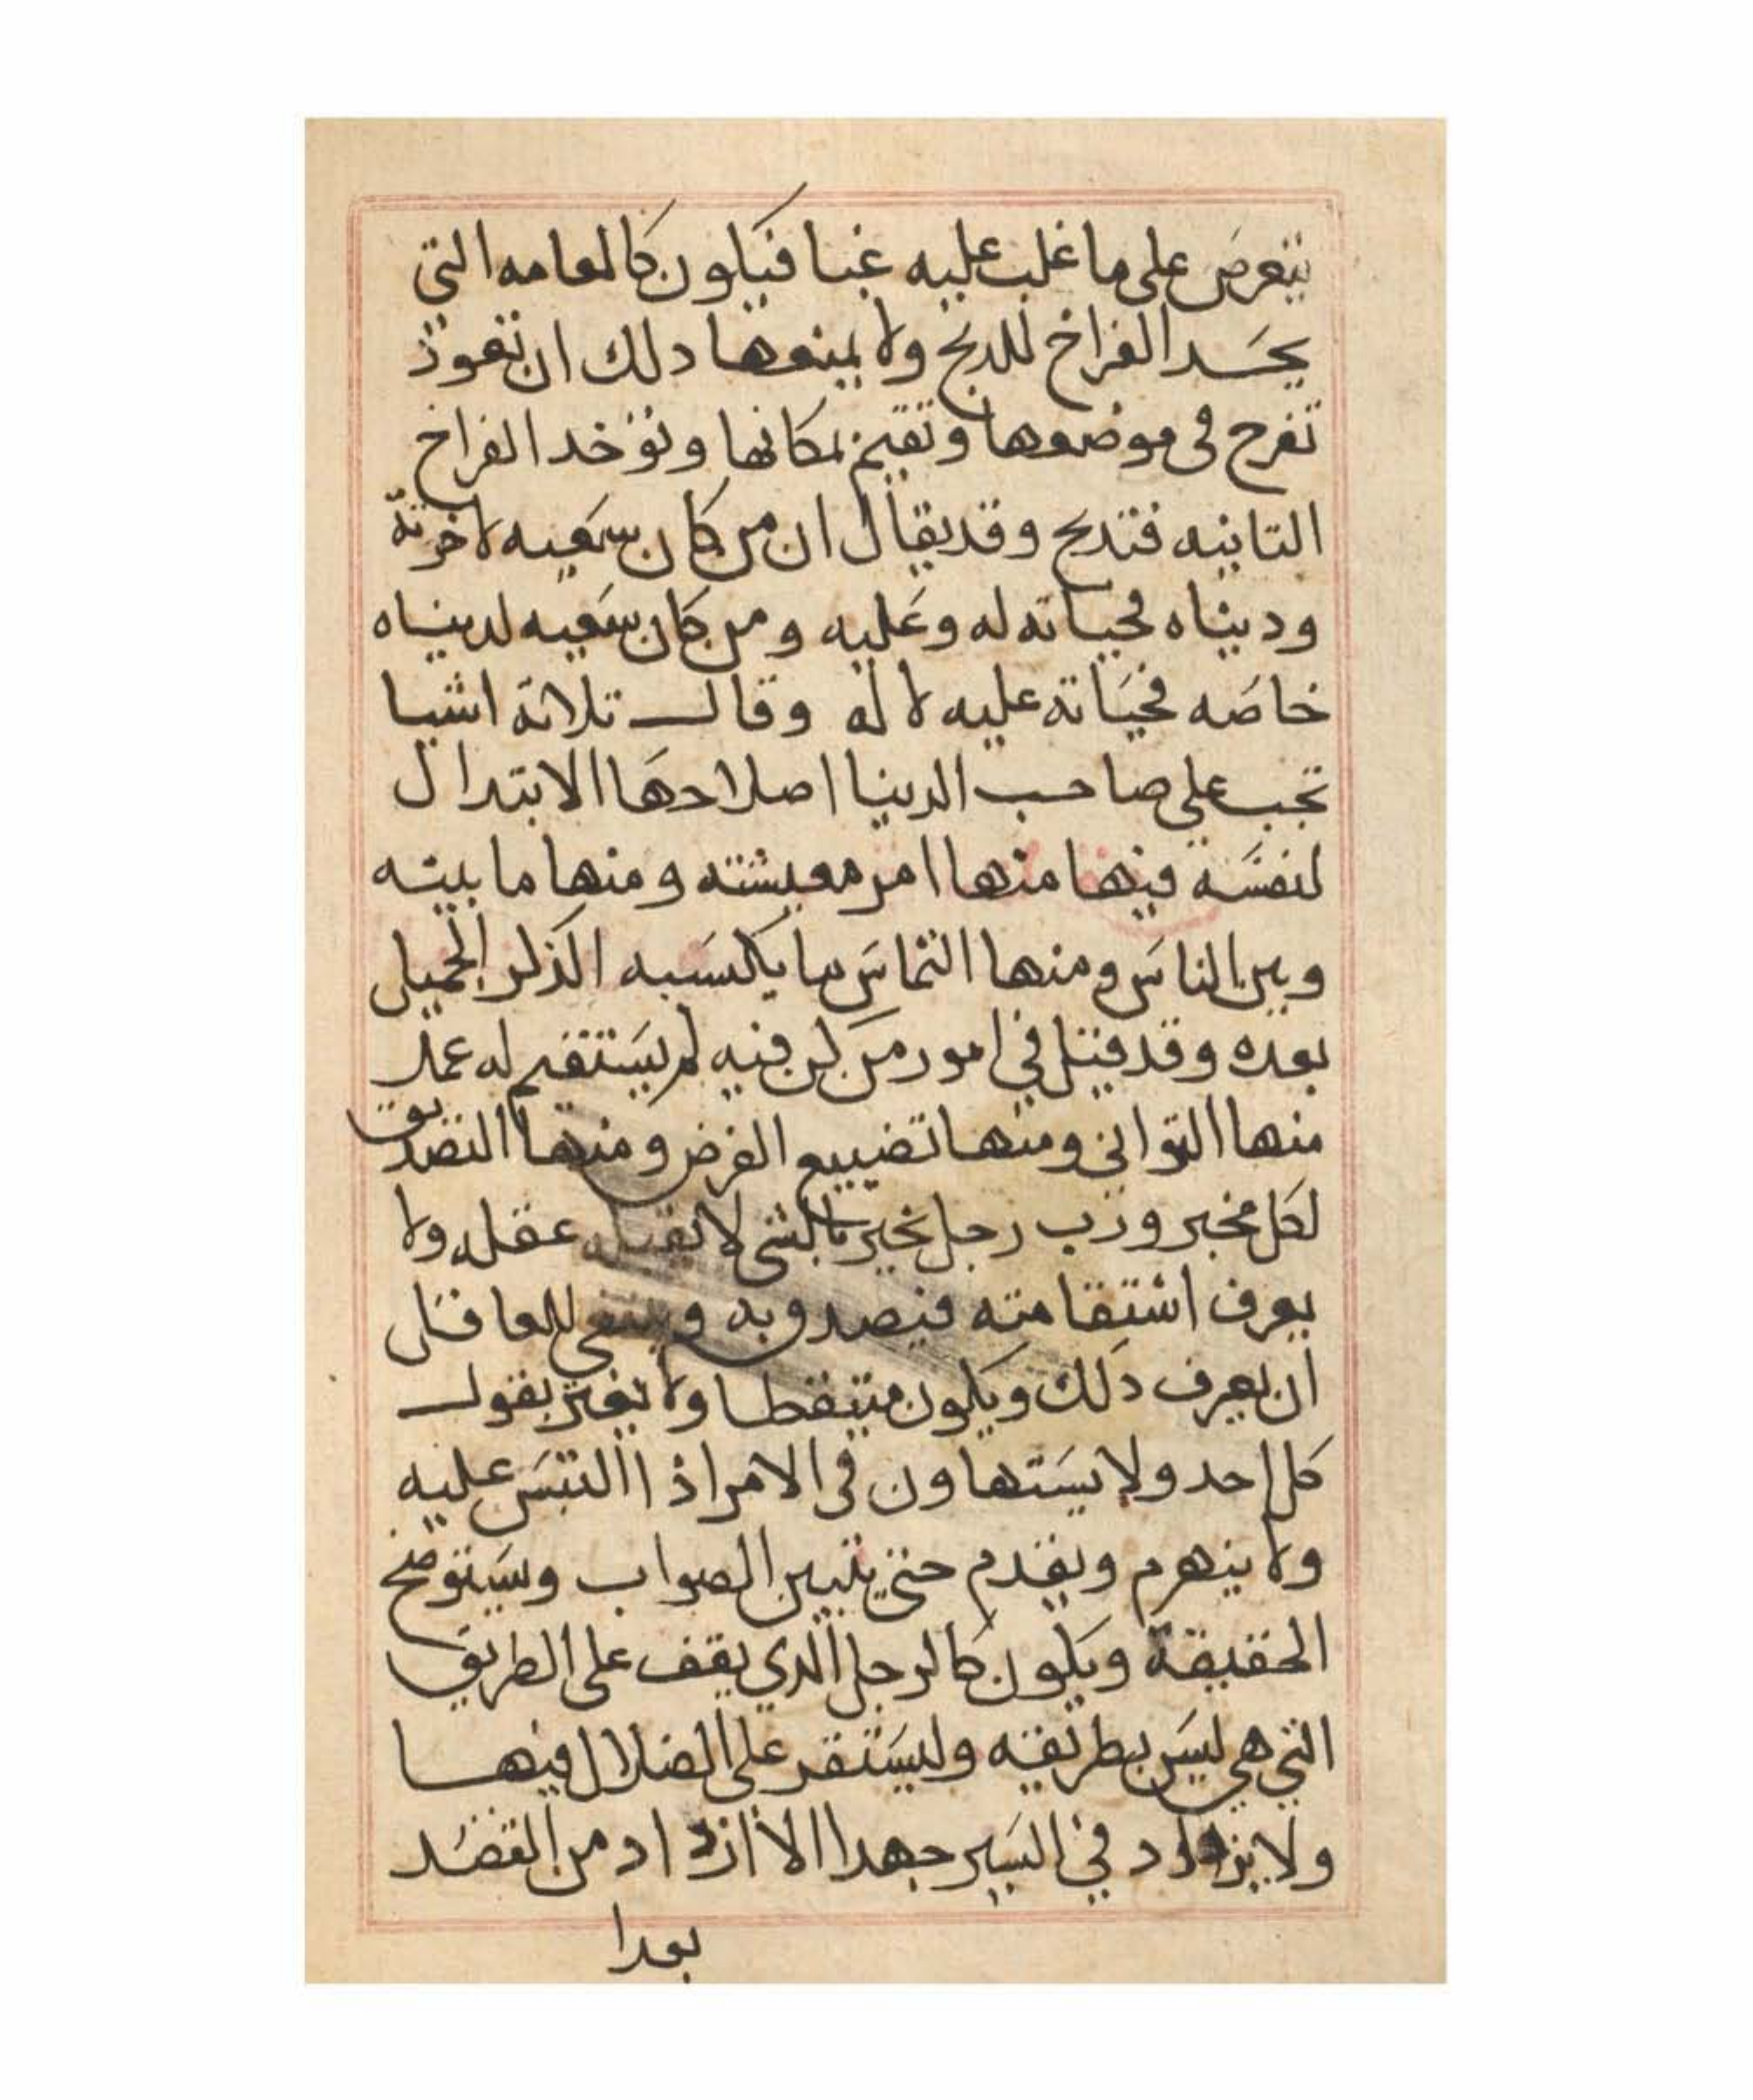 يتعرض على ما غلب عليه غبا فيكون كالعامه التي
يحسد الفراخ للدبح ولا يمنعها دلك ان تعود
تفرح في موضعها وتقيم بمكانها وتوخد الفراخ
التانيه فتدبح وقد يقال ان من كان سعيه لاخرته
ودنياه فحياته له وعليه ومن كان سعيه لدنياه
خاصه فحياته عليه لا له وقال تلاتة اشيا
تجب على صاحب الدنيا اصلاحها الابتدال
لنفسه فيها منها امر معيشته ومنها ما بينه
وبين الناس ومنها التماس ما يكسبه الذكر الجميل
بعده وقد قيل في امور من كن فيه لم يستقيم له عمل
منها التواني ومنها تضييع الفرض ومنها التصديق
لكل مخبر ورب رجل يخبر بالشي لا يقبله عقله ولا
يعرف استقامته فيصدق به وينبغي للعاقل
ان يعرف دلك ويكون متيقظا ولا يغتر بقول
كل احد ولا يستهاون في الامر اذا التبس عليه
ولا ينهرم ويقدم حتى يتبين الصواب وستوضح
الحقيقة ويكون كالرجل الدي يقف على الطريق
التي هي ليس بطريقه وليستقر على الضلال فيها
ولا يزداد في السير جهدا الا ازداد من القصد
بعدا